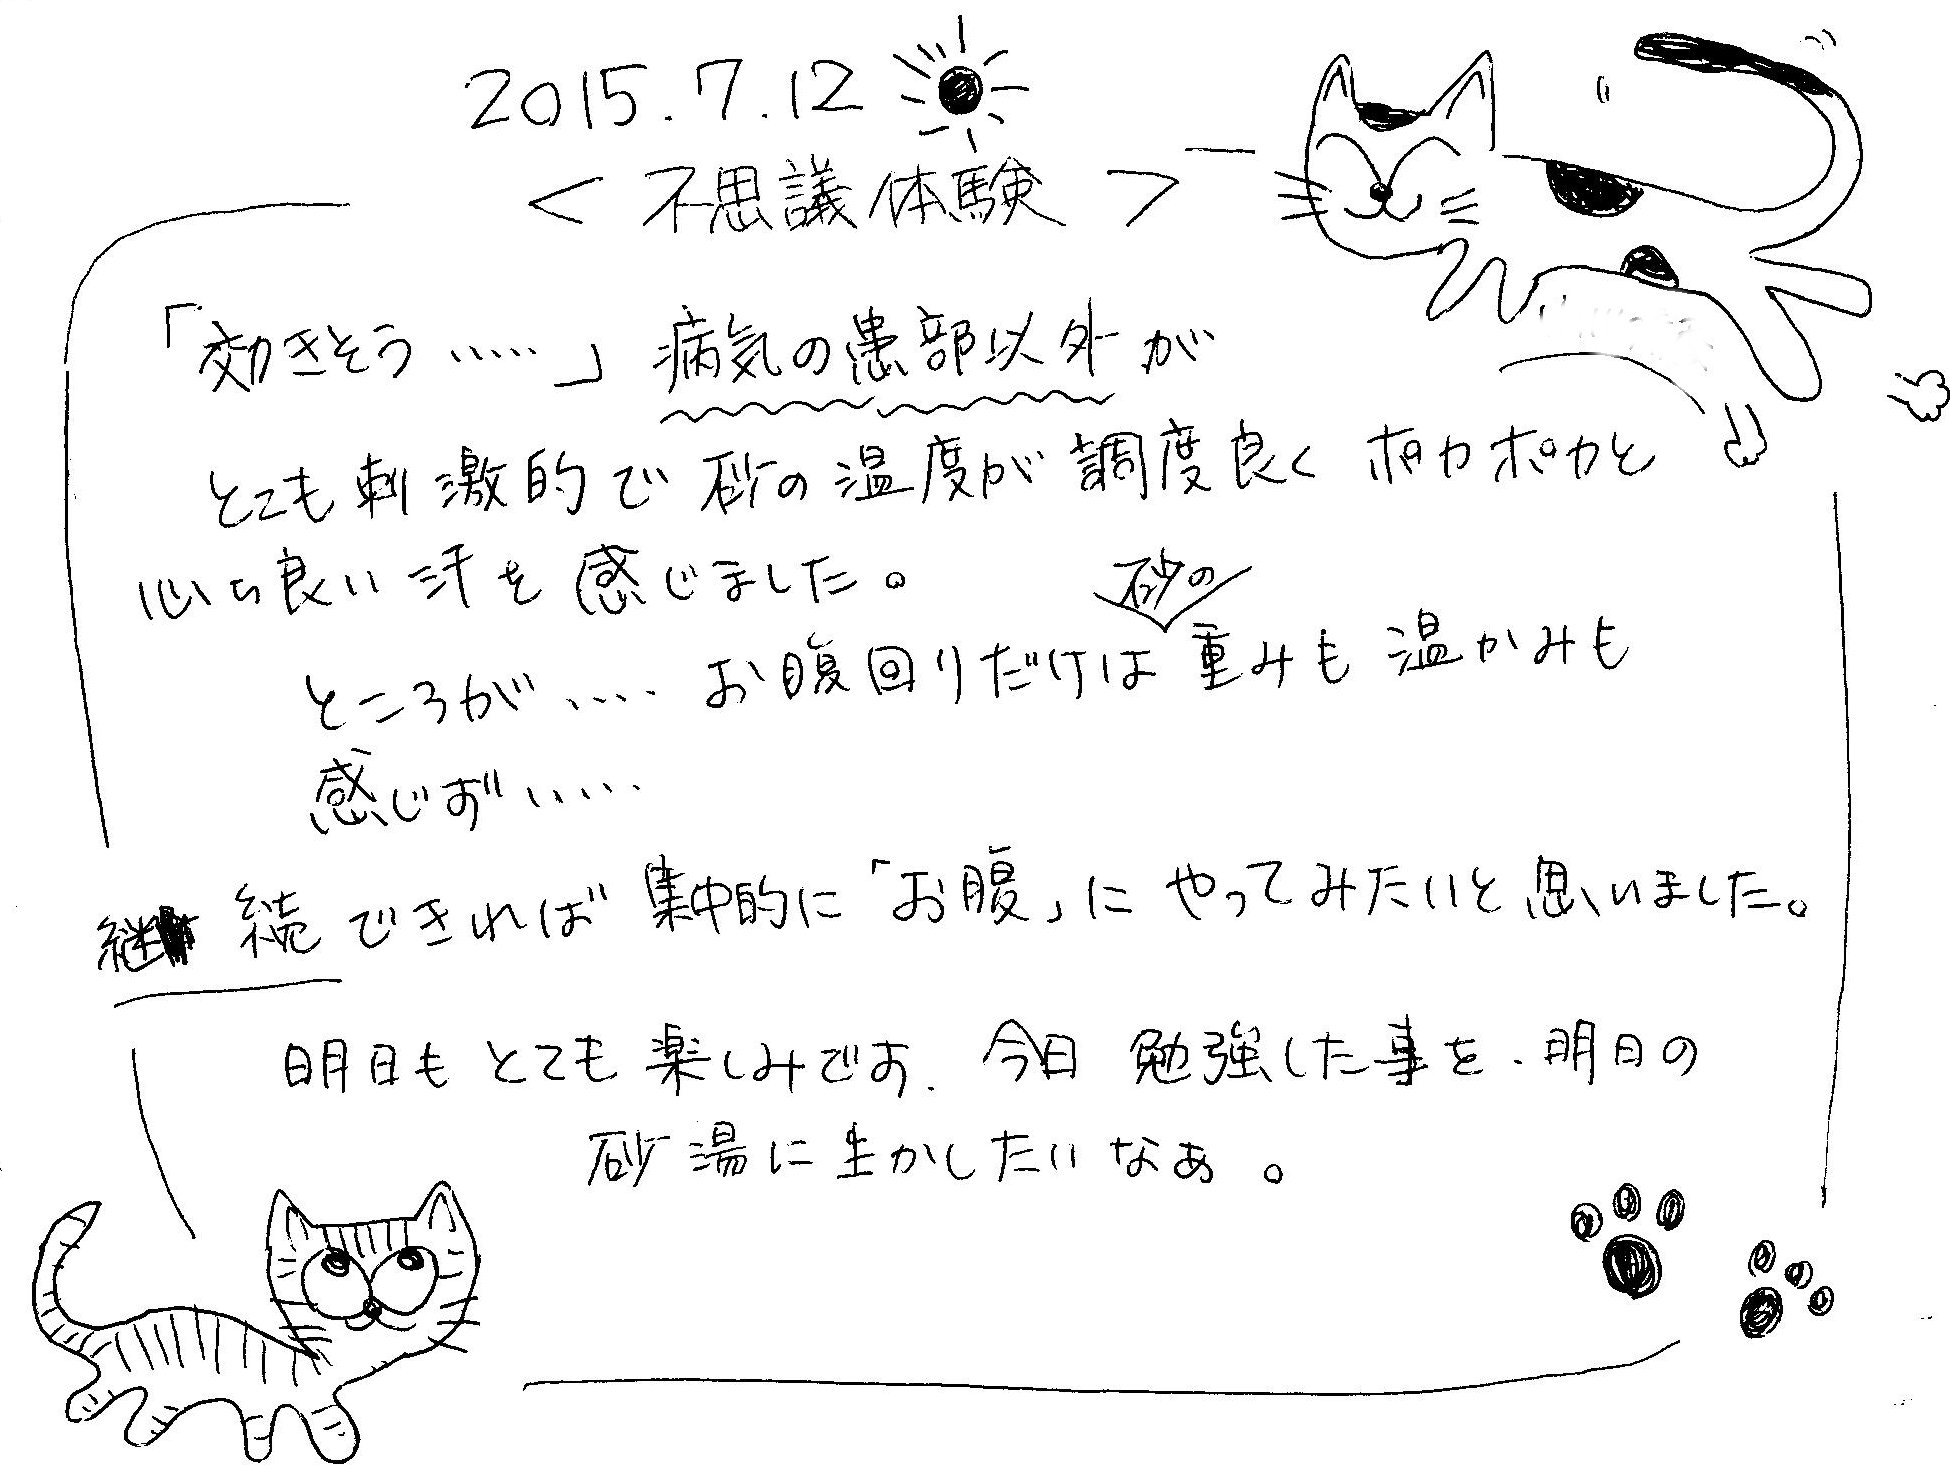 2015.7.12
<不思議体験>
「効きそう……」病気の患部以外が
とても刺激的で砂の温度が調度良くポカポカと
心ち良い汗を感じました。
ところが‥‥お腹回りだけは砂の重みも温かみも
感じず‥‥‥
継続できれば集中的に「お腹」にやってみたいと思いました。
明日もとても楽しみです.今日勉強した事を、明日の
砂湯に生かしたいなぁ。